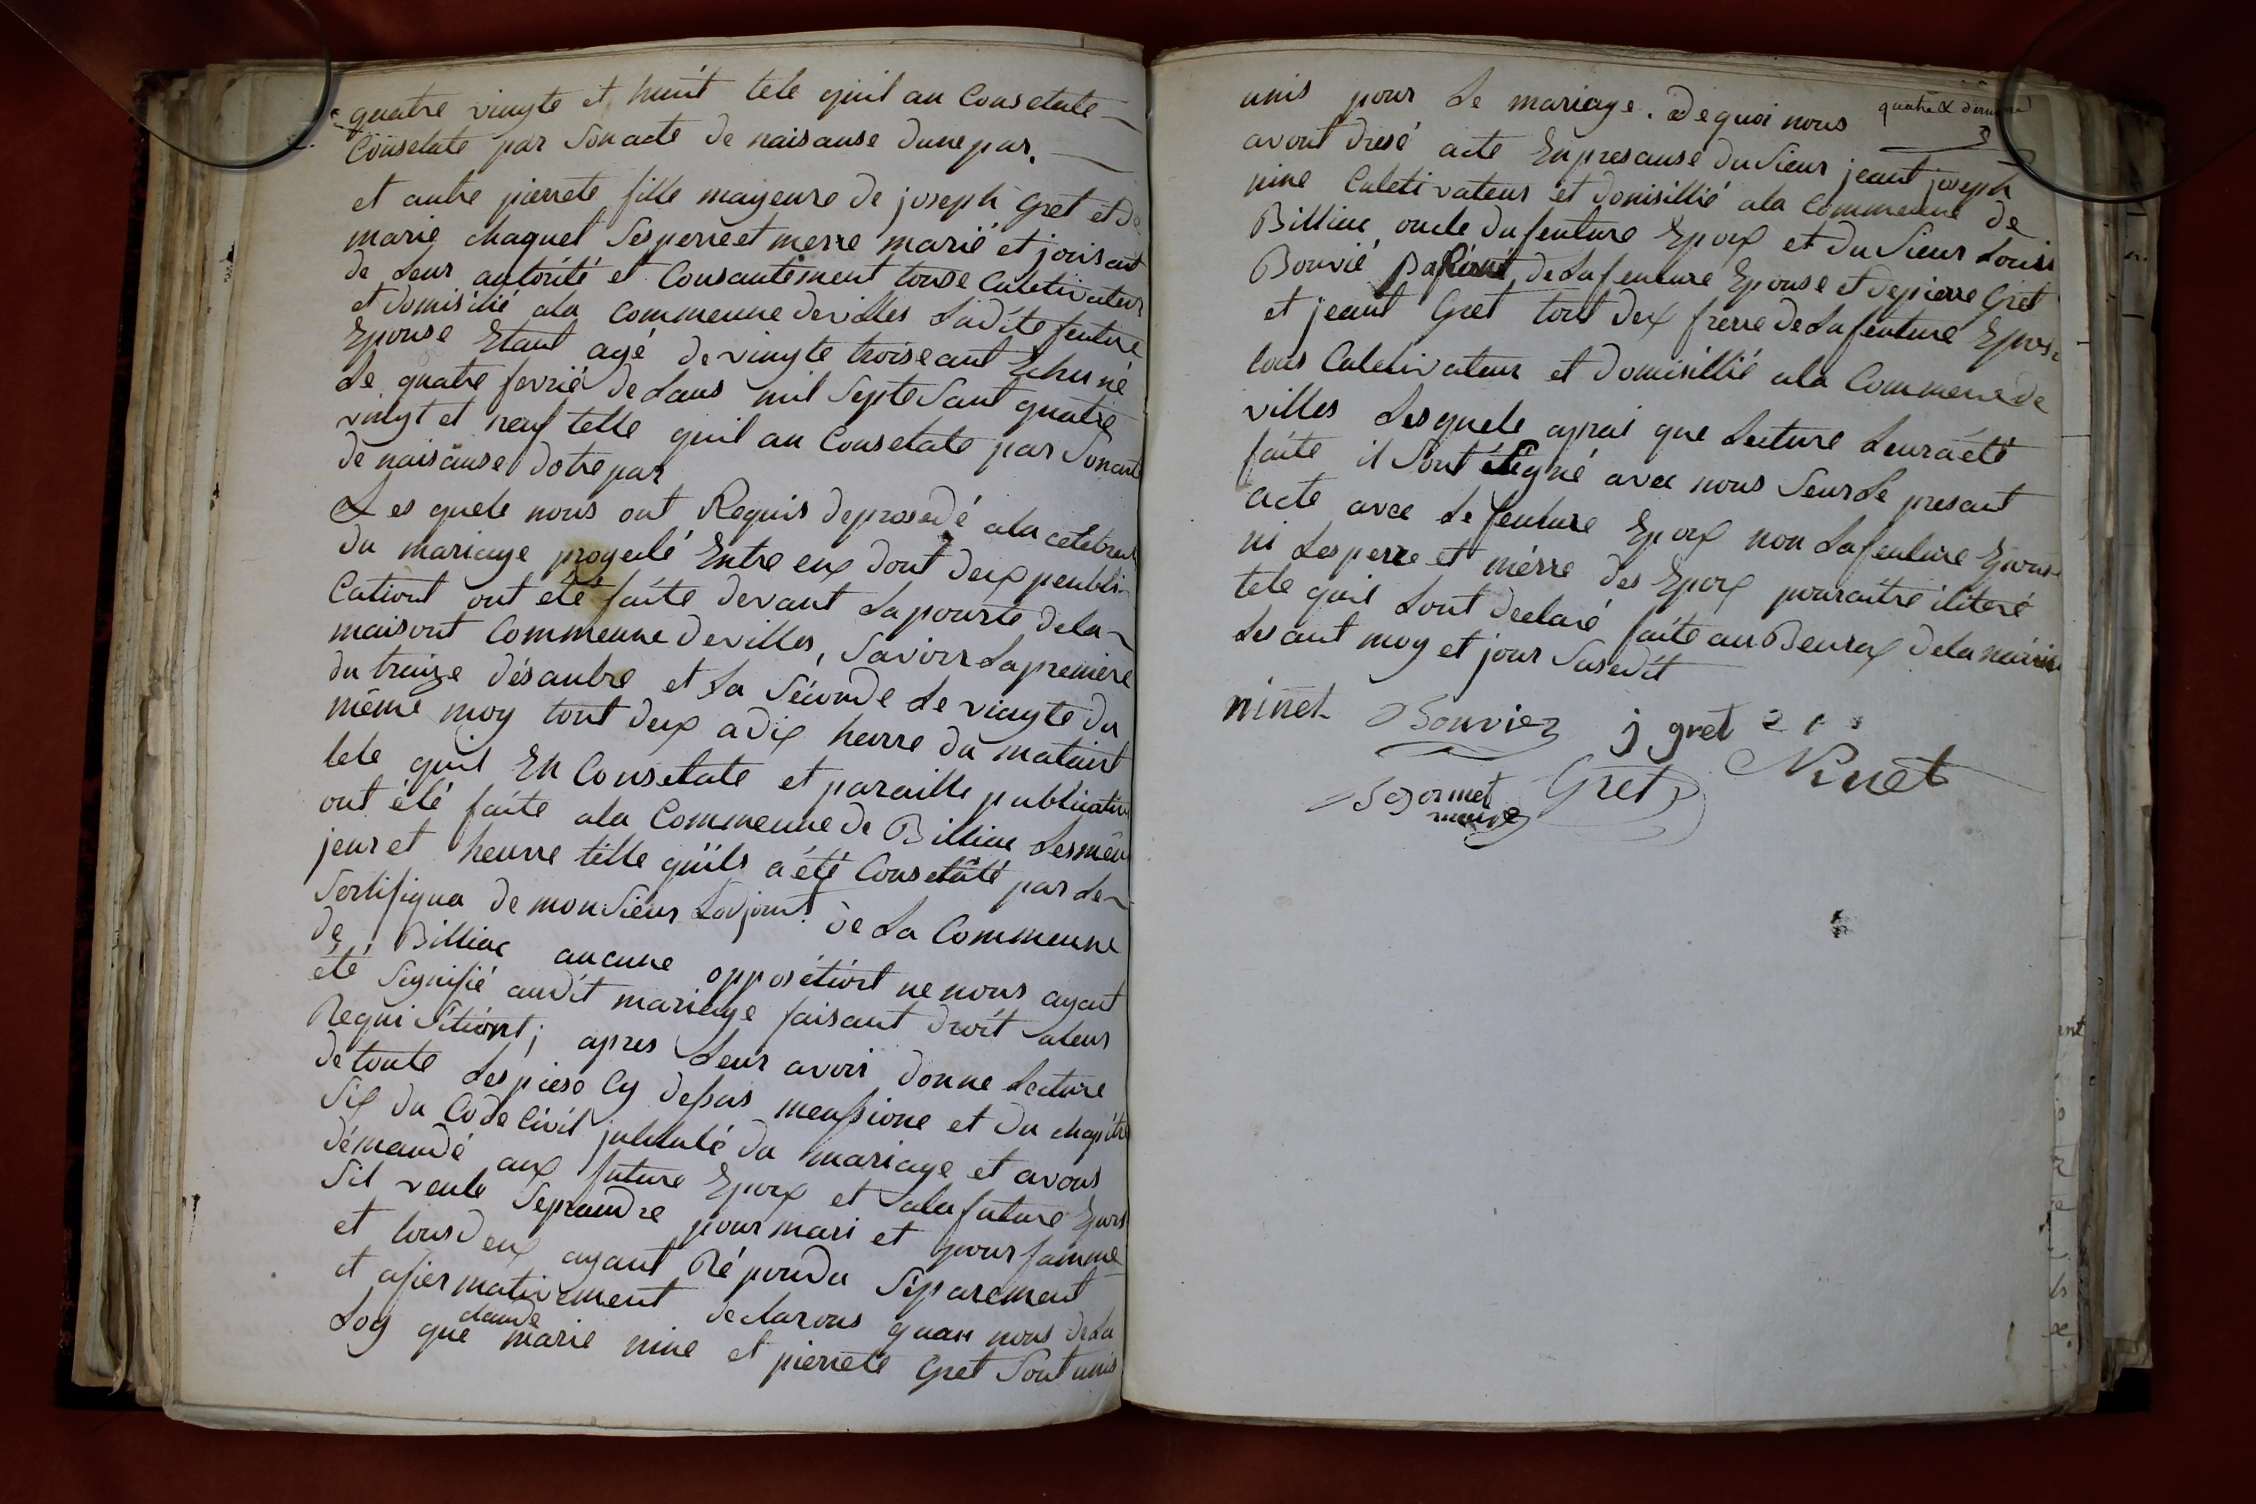 quatre vingte et huit tele quil au Consetate
Consetate par Son acte de naisause dune par.
et autre pierrete fille mageure de joseph Gret et de
marie chaquet Ses perre et merre marié et joisant
de Leur autorité et Consantement touse Caletivateur
et domisilié ala Commeune devilles Ladite feuture
Epouse Etant agé de vingte troise ant Echu né
Le quatre fevrié de Lans mil Septe Sant quatre
vingt et neuf telle quil au Consetate par Son acte
de naisause dotre par
Les quele nous ont Requis deprosedé ala celebrant
du mariage progeté Entre eux dont deux peubli-
Cationt ont été faite devant La pourte dela
maisont Commeune devilles, Savoir La premiere
du traize désanbre et La Séconde Le vingte du
même moy tout deux a dix heurre du mataint
tele quil En Consetate et paraille publication
ont été faite ala Commeune de Billiac Les mêm
jeur et heurre telle quils a été Consetaté par Le
Sertifiqua de monsieur Ladjoint de La Commeune
de Billiac aucune opposétiont ne nous ayant
été Signifié audit mariage faisant droit aleur
Requisitiont; apres Leur avoir donne Lecture
de toute Les piese Cy desus menssione et du chapitre
Six du Code Civil jutitulé du mariage et avous
démandé aux future Epoux et ala future Epous
Sil veule Seprandre pour mari et pour famme
et tous deux ayant Répondu Séparement
et afiermativement declarons quau nous de La
Loy que claude marie nine et pierrete Gret Sont unis
quatre & dernier
unis pour Le mariage. De quoi nous
avont dresé acte En presause du Sieur jeant joseph
nine Culetivateur et domisillié ala Commeune de
Billiac oncle du feuture Epoux et du Sieur Louis
Bouvié de La feuture Epouse et de pierre Gret
et jeant Gret tout dex frerre de La feuture Epouse
tous Caletivateur et domisillié ala Commeune de
villes Les quele aprai que Lecture Leura été
faite il Sont Signé avec nous Seur Le presant
acte avec Le feuture Epoux non La feuture Epouse
ni Les perre et mérre des Epoux pouraitre iliteré
tele quil Lont declaré faite au Beurax dela mairie
Les ant moy et jour Susedit
ninet Bouvier j gret
Gret Ninet
maire